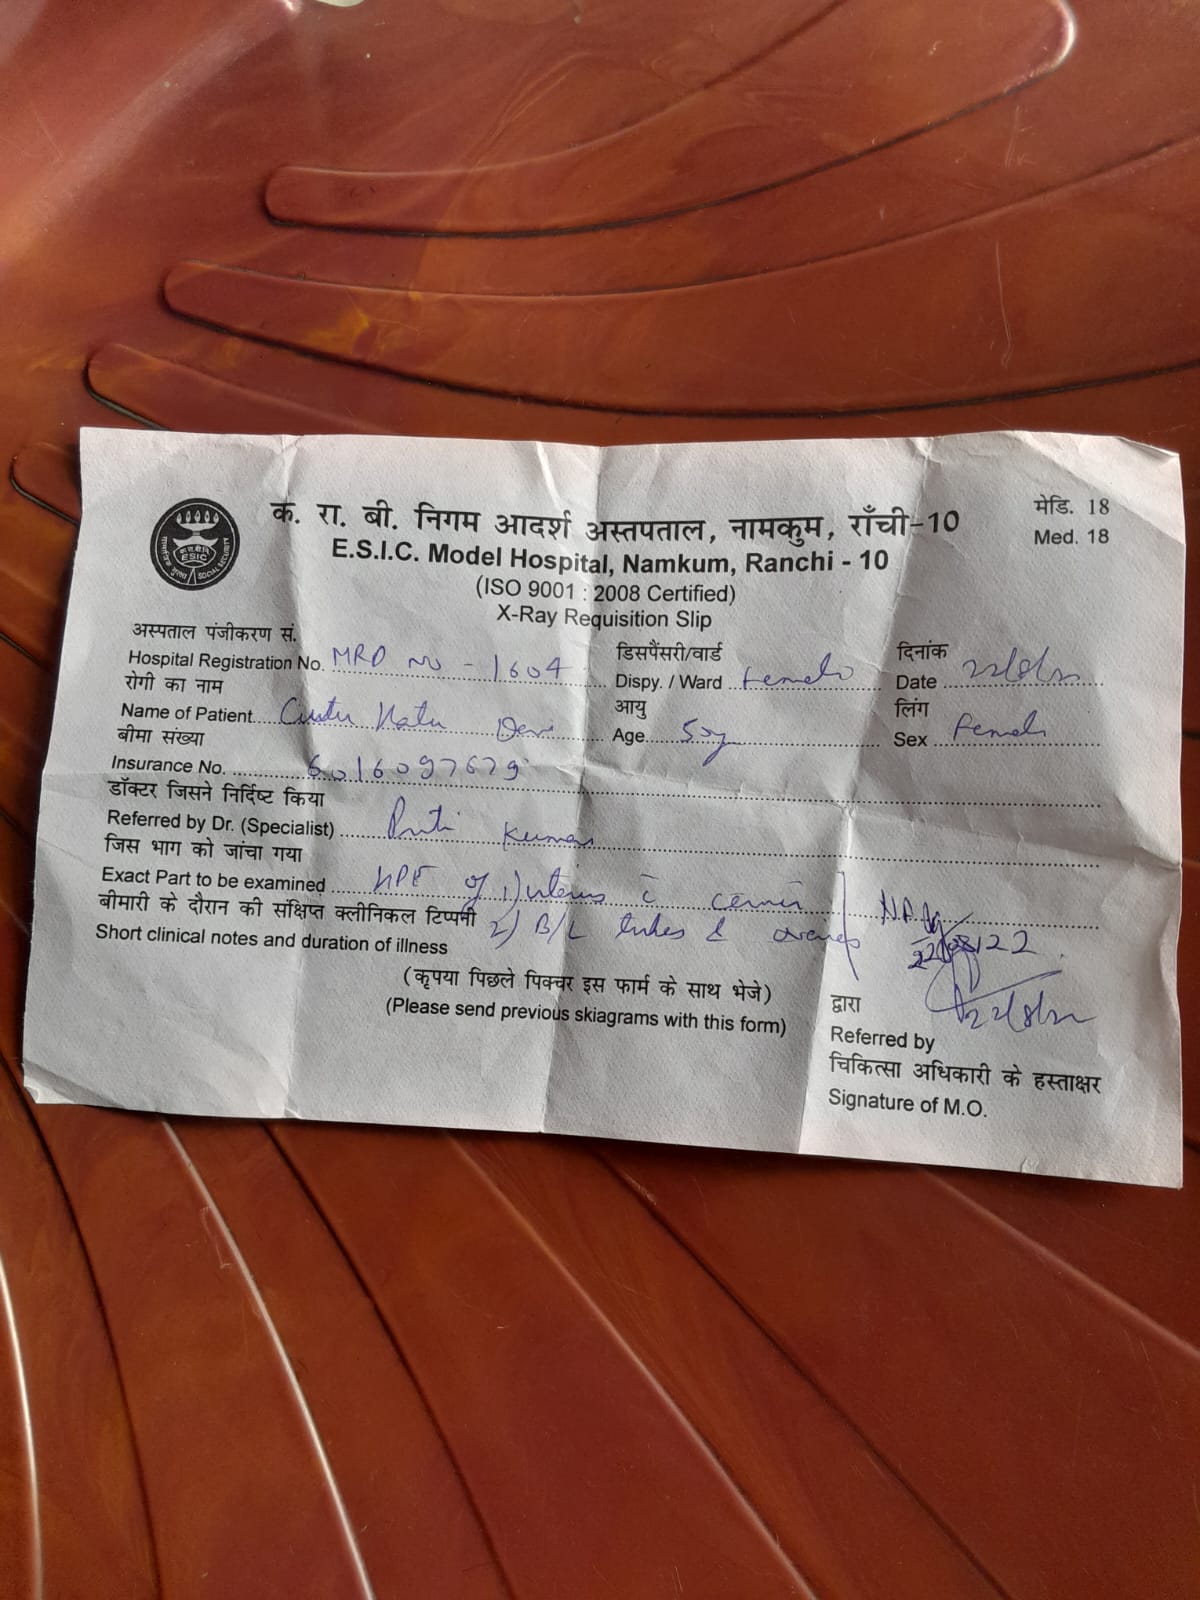 क. रा. बी. निगम आदर्श अस्तपताल, नामकुम, राँची-10
मेडि. 18
E.S.I.C. Model Hospital, Namkum, Ranchi - 10
Med. 18
(ISO 9001 : 2008 Certified)
X-Ray Requisition Slip
ESIC
SOCIAL SECURITY
अस्पताल पंजीकरण सं.
डिसपैंसरी/वार्ड
दिनांक
Hospital Registration No. MRD no - 1604
Dispy. / Ward Female
Date 22/8/22
रोगी का नाम
आयु
लिंग
Name of Patient Devi
Age 50y
Sex Female
बीमा संख्या
Insurance No. 6016097679
डॉक्टर जिसने निर्दिष्ट किया
Referred by Dr. (Specialist) Kumar
जिस भाग को जांचा गया
Exact Part to be examined HPE of 1) uterus c̄ cervix
बीमारी के दौरान की संक्षिप्त क्लीनिकल टिप्पनी 2) B/L tubes & ovaries
Short clinical notes and duration of illness
22/08/22
(कृपया पिछले पिक्चर इस फार्म के साथ भेजे)
(Please send previous skiagrams with this form)
22/8/22
द्वारा
Referred by
चिकित्सा अधिकारी के हस्ताक्षर
Signature of M.O.